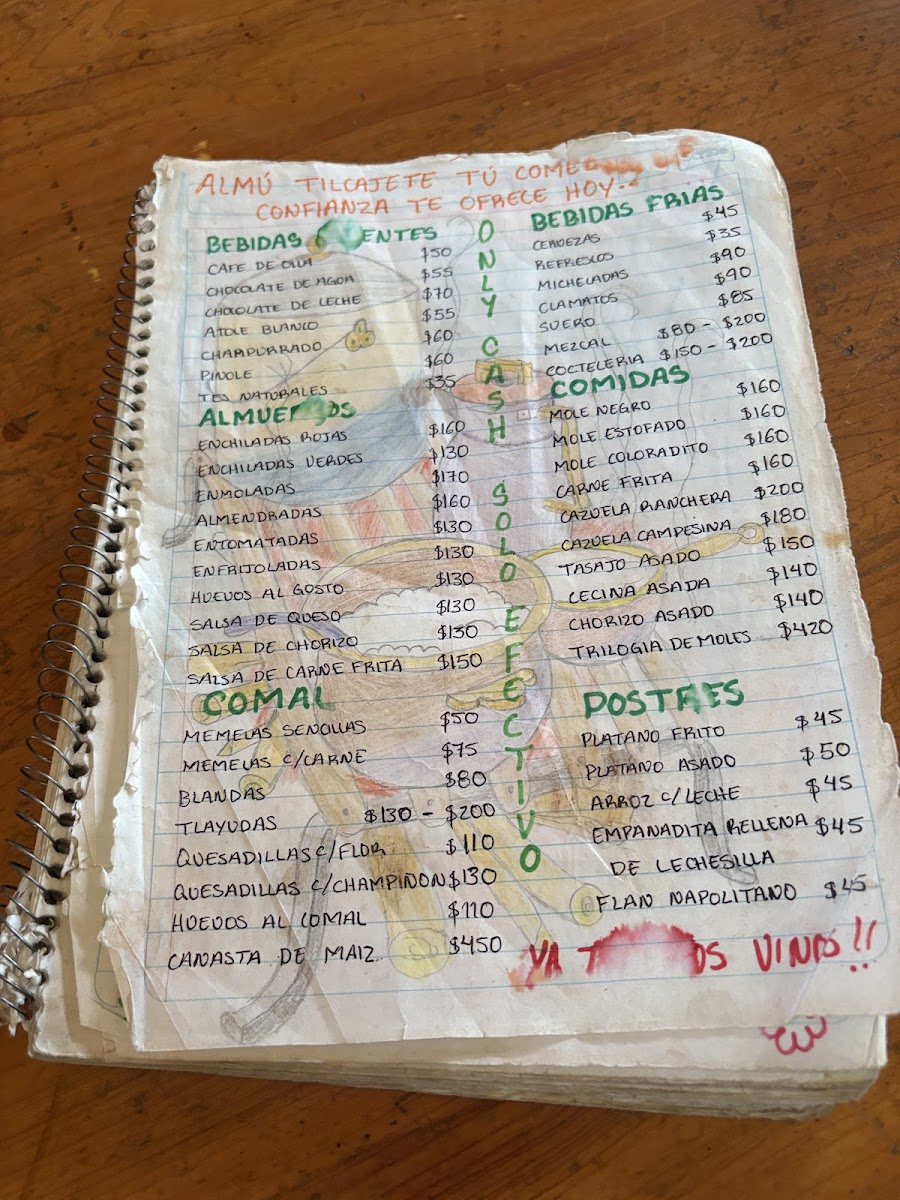 ALMÚ TILCAJETE TÚ
CONFIANZA TE OFRECE HOY..
BEBIDAS
CAFE DE OLLA $50
CHOCOLATE DE AGUA $55
CHOCOLATE DE LECHE $70
ATOLE BLANCO $55
CHAMPURRADO $60
PINOLE $60
TES NATURALES $35
ALMUERZOS
ENCHILADAS ROJAS $160
ENCHILADAS VERDES $130
ENMOLADAS $170
ALMENDRADAS $160
ENTOMATADAS $130
ENFRIJOLADAS $130
HUEVOS AL GOSTO $130
SALSA DE QUESO $130
SALSA DE CHORIZO $130
SALSA DE CARNE FRITA $150
COMAL
MEMELAS SENCILLAS $50
MEMELAS C/CARNE $75
BLANDAS $80
TLAYUDAS $130 - $200
QUESADILLAS C/FLOR $110
QUESADILLAS C/CHAMPIÑON $130
HUEVOS AL COMAL $110
CANASTA DE MAIZ $450
ONLY CASH SOLO EFECTIVO
BEBIDAS FRIAS
CERVEZAS $45
REFRESCOS $35
MICHELADAS $90
CLAMATOS $90
SUERO $85
MEZCAL $80 - $200
COCTELERIA $150 - $200
COMIDAS
MOLE NEGRO $160
MOLE ESTOFADO $160
MOLE COLORADITO $160
CARNE FRITA $160
CAZUELA RANCHERA $200
CAZUELA CAMPESINA $180
TASAJO ASADO $150
CECINA ASADA $140
CHORIZO ASADO $140
TRILOGIA DE MOLES $420
POSTRES
PLATANO FRITO $45
PLATANO ASADO $50
ARROZ C/LECHE $45
EMPANADITA RELLENA $45
DE LECHESILLA
FLAN NAPOLITANO $45
YA VINOS!!